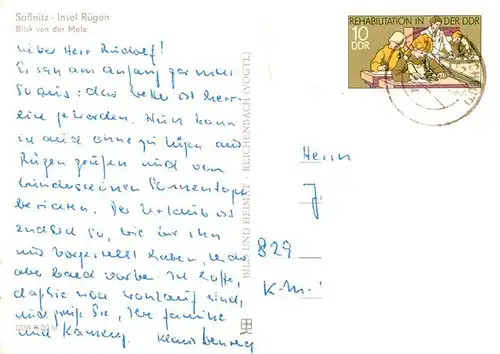 Saßnitz - Insel Rügen
Blick von der Mole
Lieber Herr Rudolf!
Es sah am Anfang gar nicht
so aus: das Wetter ist herr-
lich geworden. Nun kann
ich auch ohne zu lügen aus
Rügen grüßen und von
wunderschönen Sonnentagen
berichten. Der Urlaub ist
endlich so, wie wir ihn
uns vorgestellt haben,
aber bald vorbei. Ich hoffe,
daß Sie wohlauf sind,
und grüße Sie, Ihre Familie
und
Klaus
DDR
BILD UND HEIMAT REICHENBACH (VOGTL)
REHABILITATION IN DER DDR
10
DDR
Herrn
J.
829
K-M-